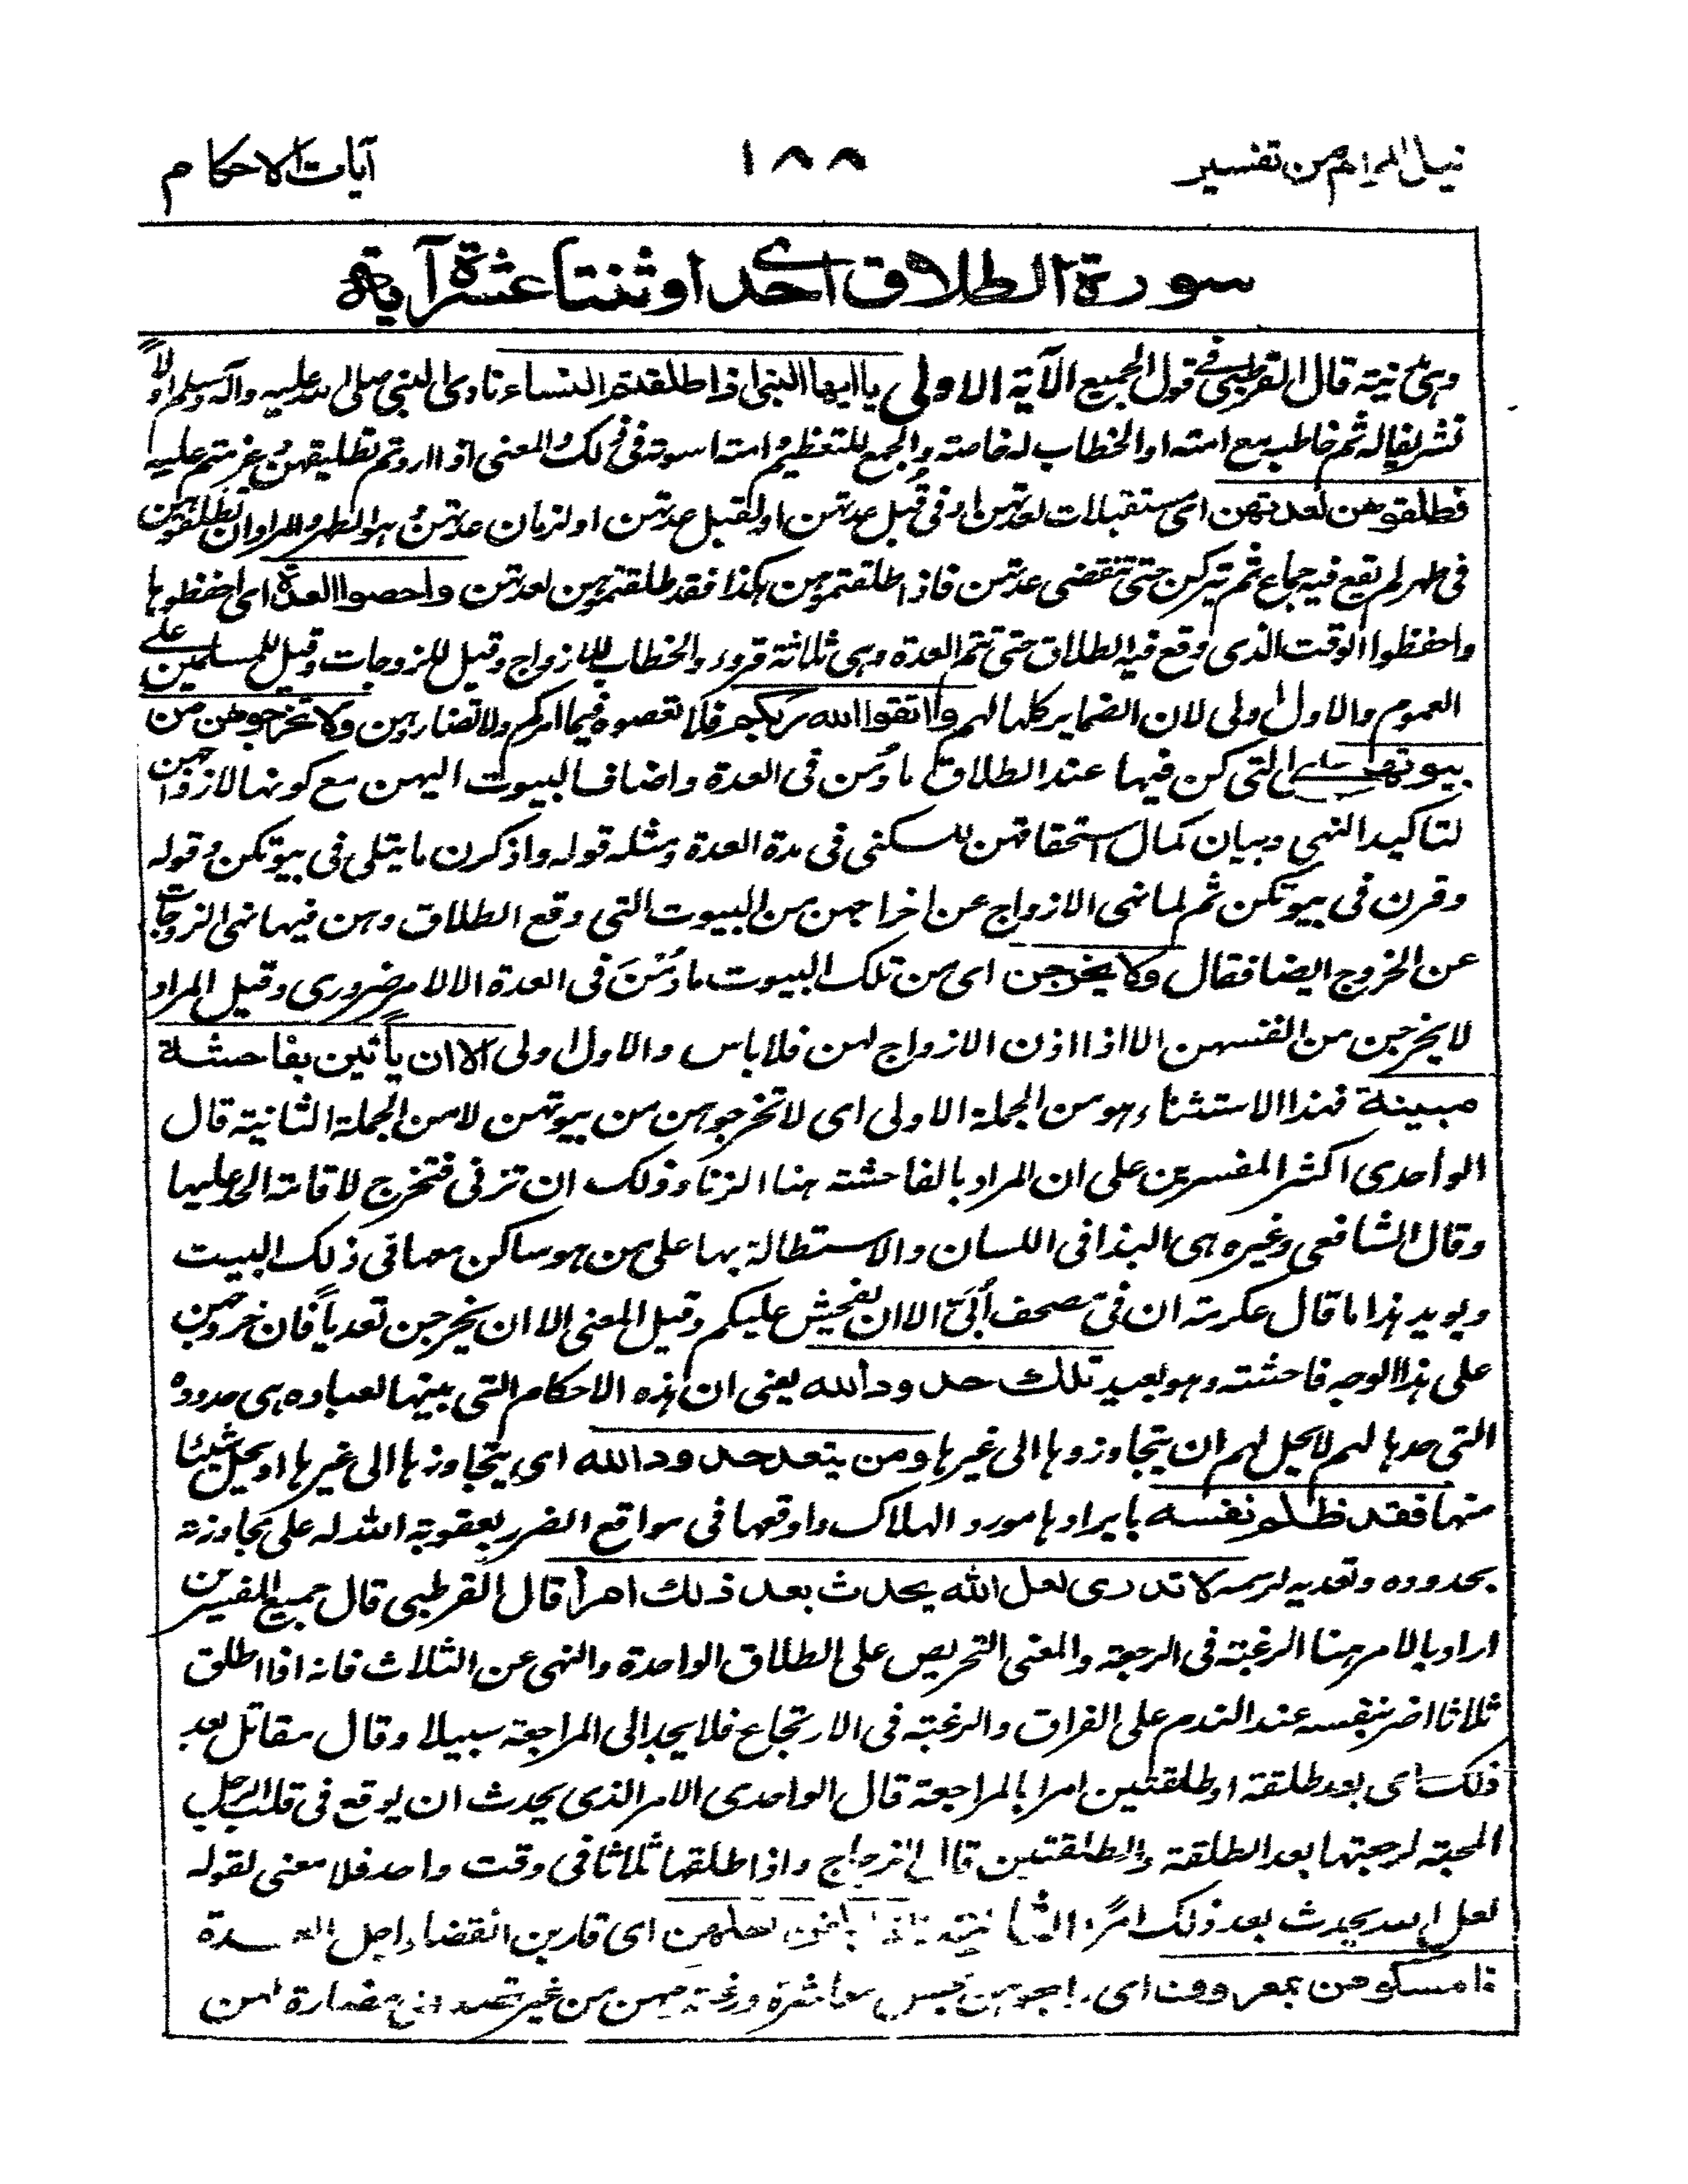 نيل المرام من تفسير
١٨٨
آيات الاحكام
سورة الطلاق احدى او ثنتا عشرة آية
وهي مدنية قال القرطبي في قول الجميع الآية الاولى يا ايها النبي اذا طلقتم النساء نادى النبي صلى الله عليه وآله وسلم اولاً
تشريفا له ثم خاطبه مع امته او الخطاب له خاصة والجمع للتعظيم وامته اسوته في ذلك والمعنى اذا اردتم تطليقهن وعزمتم عليه
فطلقوهن لعدتهن اي مستقبلات لعدتهن او في قبل عدتهن او لقبل عدتهن او لزمان عدتهن وهو الطهر والمراد ان تطلقوهن
في طهر لم يقع فيه جماع ثم يتركن حتى تنقضي عدتهن فاذا طلقتموهن هكذا فقد طلقتموهن لعدتهن واحصوا العدة اي احفظوها
واحفظوا الوقت الذي وقع فيه الطلاق حتى تتم العدة وهي ثلاثة قروء والخطاب للازواج وقيل للزوجات وقيل للمسلمين على
العموم والاول اولى لان الضماير كلها لهم واتقوا الله ربكم فلا تعصوه فيما امركم ولا تضاروهن ولا تخرجوهن من
بيوتهن اي التي كن فيها عند الطلاق ما دُمن في العدة واضاف البيوت اليهن مع كونها لازواجهن
لتاكيد النهي وبيان كمال استحقاقهن للسكنى في مدة العدة ومثله قوله واذكرن ما يتلى في بيوتكن وقوله
وقرن في بيوتكن ثم لما نهى الازواج عن اخراجهن من البيوت التي وقع الطلاق وهن فيها نهى الزوجات
عن الخروج ايضا فقال ولا يخرجن اي من تلك البيوت ما دُمْنَ في العدة الا لامر ضروري وقيل المراد
لا يخرجن من انفسهن الا اذا اذن الازواج لهن فلا باس والاول اولى الا ان يأتين بفاحشة
مبينة هذا الاستثناء هو من الجملة الاولى اي لا تخرجوهن من بيوتهن لا من الجملة الثانية قال
الواحدي اكثر المفسرين على ان المراد بالفاحشة هنا الزنا وذلك ان تزني فتخرج لاقامة الحد عليها
وقال الشافعي وغيره هي البذا في اللسان والاستطالة بها على من هو ساكن معها في ذلك البيت
ويويد هذا ما قال عكرمة ان في مصحف أُبَيّ الا ان يفحش عليكم وقيل المعنى الا ان يخرجن تعدياً فان خروجهن
على هذا الوجه فاحشة وهو بعيد تلك حدود الله يعني ان هذه الاحكام التي بينها لعباده هي حدوده
التي حدها لهم لا يحل لهم ان يتجاوزوها الى غيرها ومن يتعد حدود الله اي يتجاوزها الى غيرها او يخل بشيء
منها فقد ظلم نفسه بايرادها مورد الهلاك واوقعها في مواقع الضرر بعقوبة الله له على مجاوزته
بحدوده وتعديه لرسمه لا تدري لعل الله يحدث بعد ذلك امرأ قال القرطبي قال جميع المفسرين
اراد بالامر هنا الرغبة في الرجعة والمعنى التحريض على الطلاق الواحدة والنهي عن الثلاث فانه اذا طلق
ثلاثا اضر بنفسه عند الندم على الفراق والرغبة في الارتجاع فلا يجد الى المراجعة سبيلا وقال مقاتل بعد
ذلك اي بعد طلقة او طلقتين امرا بالمراجعة قال الواحدي الامر الذي يحدث ان يوقع في قلب الرجل
المحبة لرجعتها بعد الطلقة والطلقتين قال الزجاج واذا طلقها ثلاثا في وقت واحد فلا معنى لقوله
لعل الله يحدث بعد ذلك امرًا الثانية فاذا بلغن اجلهن اي قاربن انقضاء اجل العدة
فامسكوهن بمعروف اي راجعوهن بحسن معاشرة ورغبة فيهن من غير قصد الى مضارة لهن